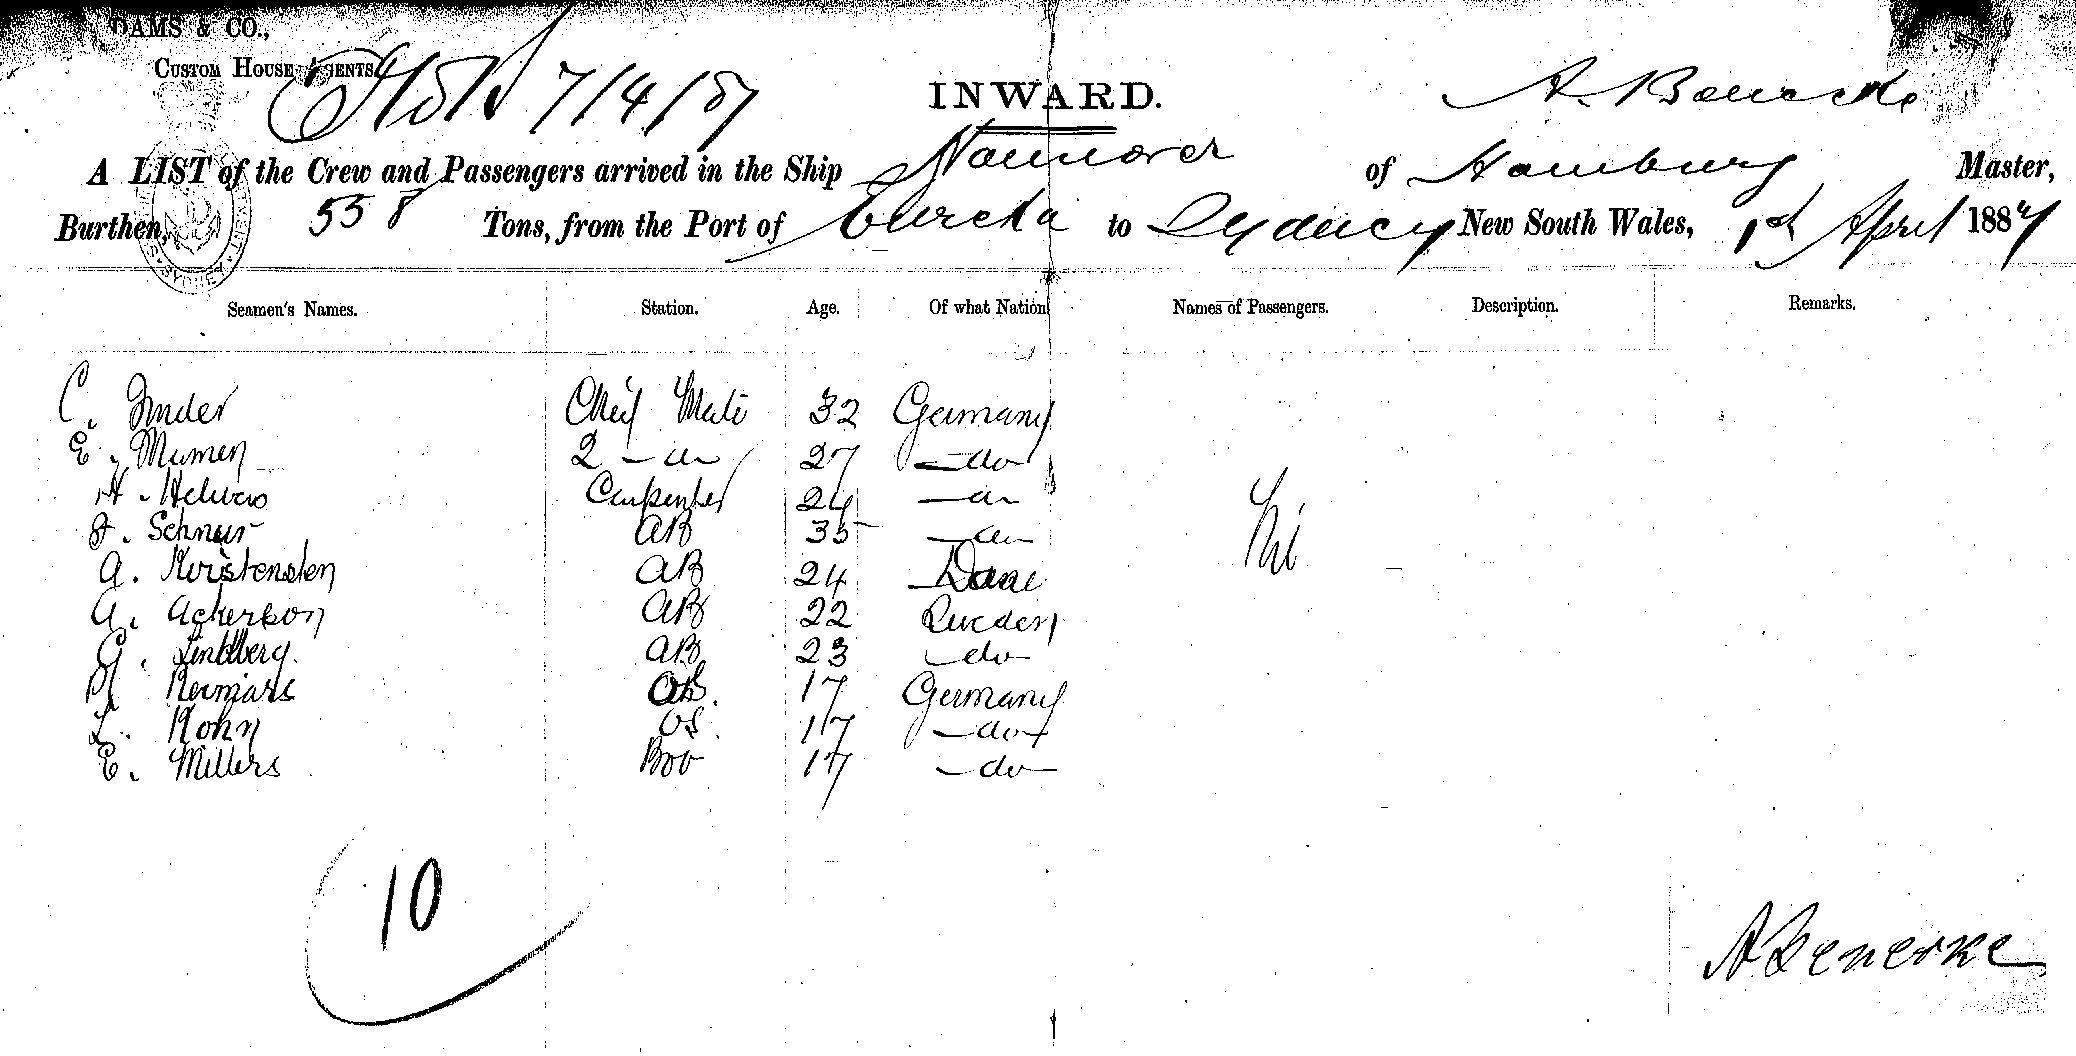 DAMS & CO.,
CUSTOM HOUSE AGENTS
7/4/87
INWARD.
A. Benecke
A LIST of the Crew and Passengers arrived in the Ship Hannover of Hamburg Master,
Burthen, 558 Tons, from the Port of Eureka to Sydney New South Wales, 1st April 1887
Seamen's Names. Station. Age. Of what Nation Names of Passengers. Description. Remarks.
C. Chief Mate 32 Germany
E. Mumen 2 - do 27 - do
H. Carpenter 24 - do
F. Schnur AB 35 - do
A. Kristensten AB 24 - Dane
A. Ackerson AB 22 Sweden
C. Lindberg. AB 23 - do
H Reimars OS. 17 Germany
L. Kohn OS. 17 - do
E. Millers Boy 17 - do
Nil
10
A Benecke